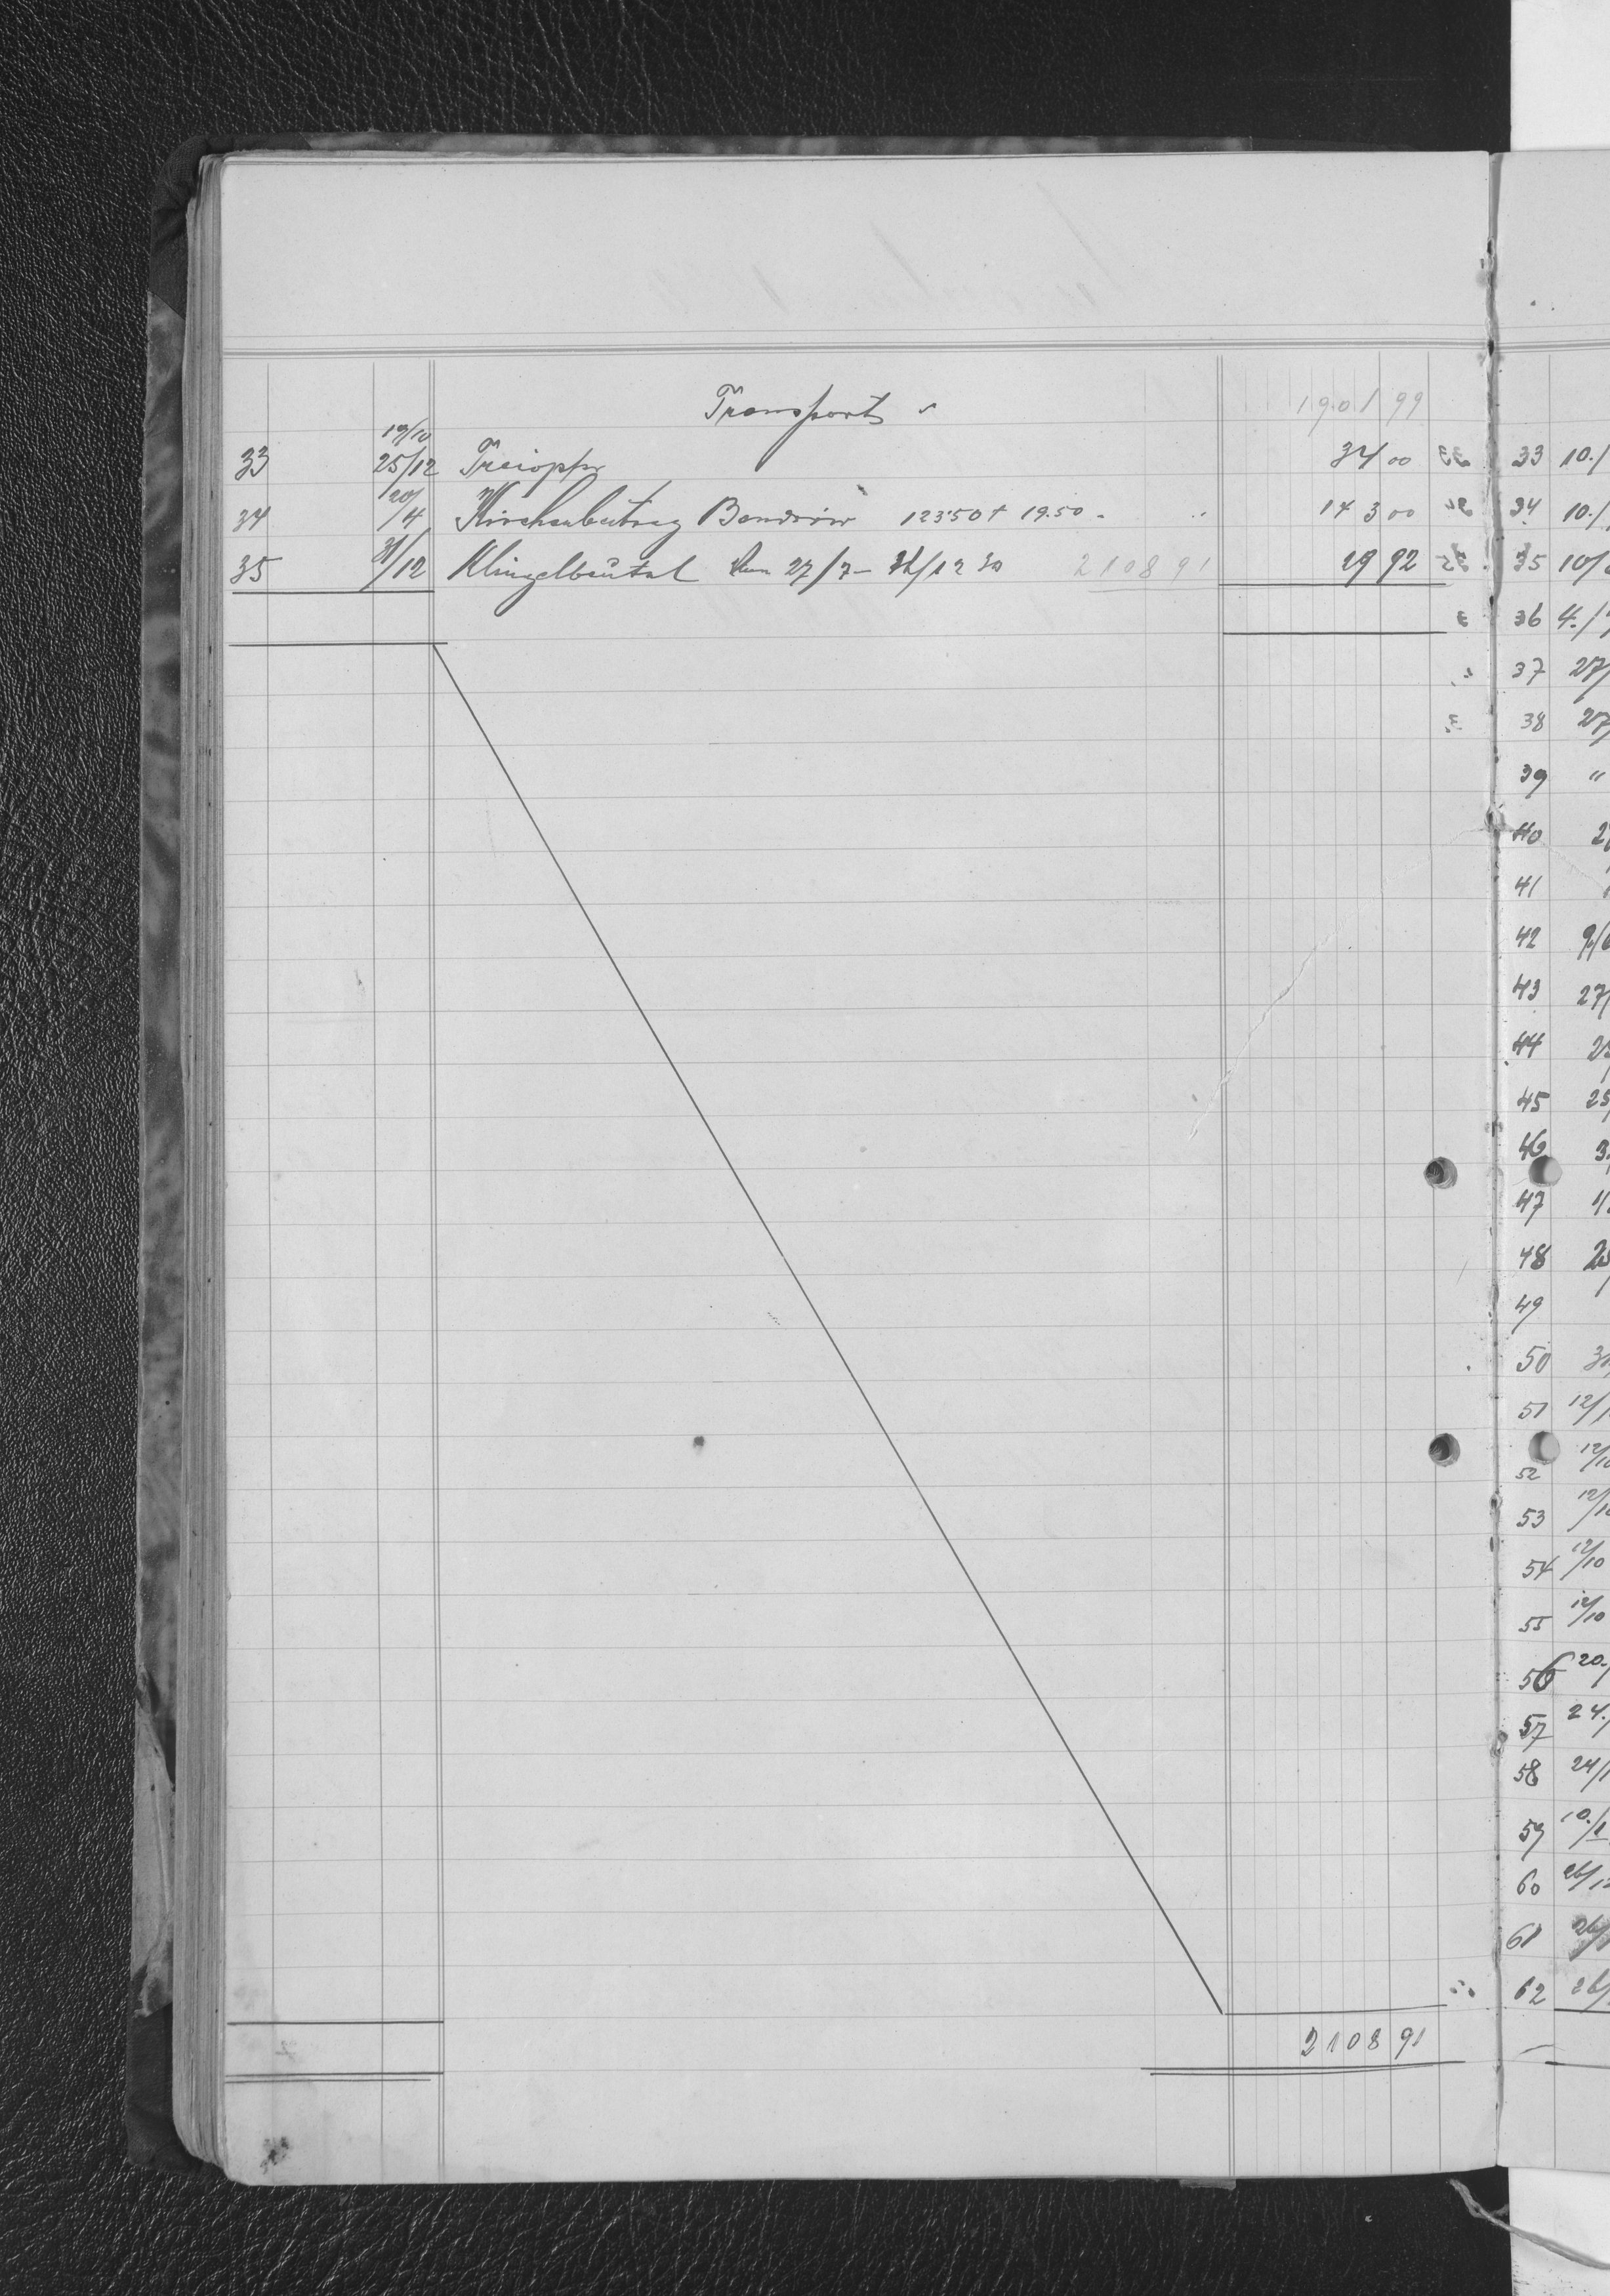 Transport 1901 99
19/10
33 25/12 34 00
34 20/4 Kirchenbeitrag 123.50 + 19.50 143 00
35 31/12 Klingelbeutel 27/7 – 31/12 30 2108 91 29 92
2108 91
33 10./
34 10./
35 10/
36 4./
37 27/
38 27/
39 "
40 2
41
42 9/6
43 27/
44 25
45 25/
46 3.
47 1/
48 25
49
50 31/
51 12/1
52 12/10
53 12/10
54 12/10
55 12/10
56 20./
57 24./
58 24/1
59 10./1
60 26/12
61 26/
62 26/